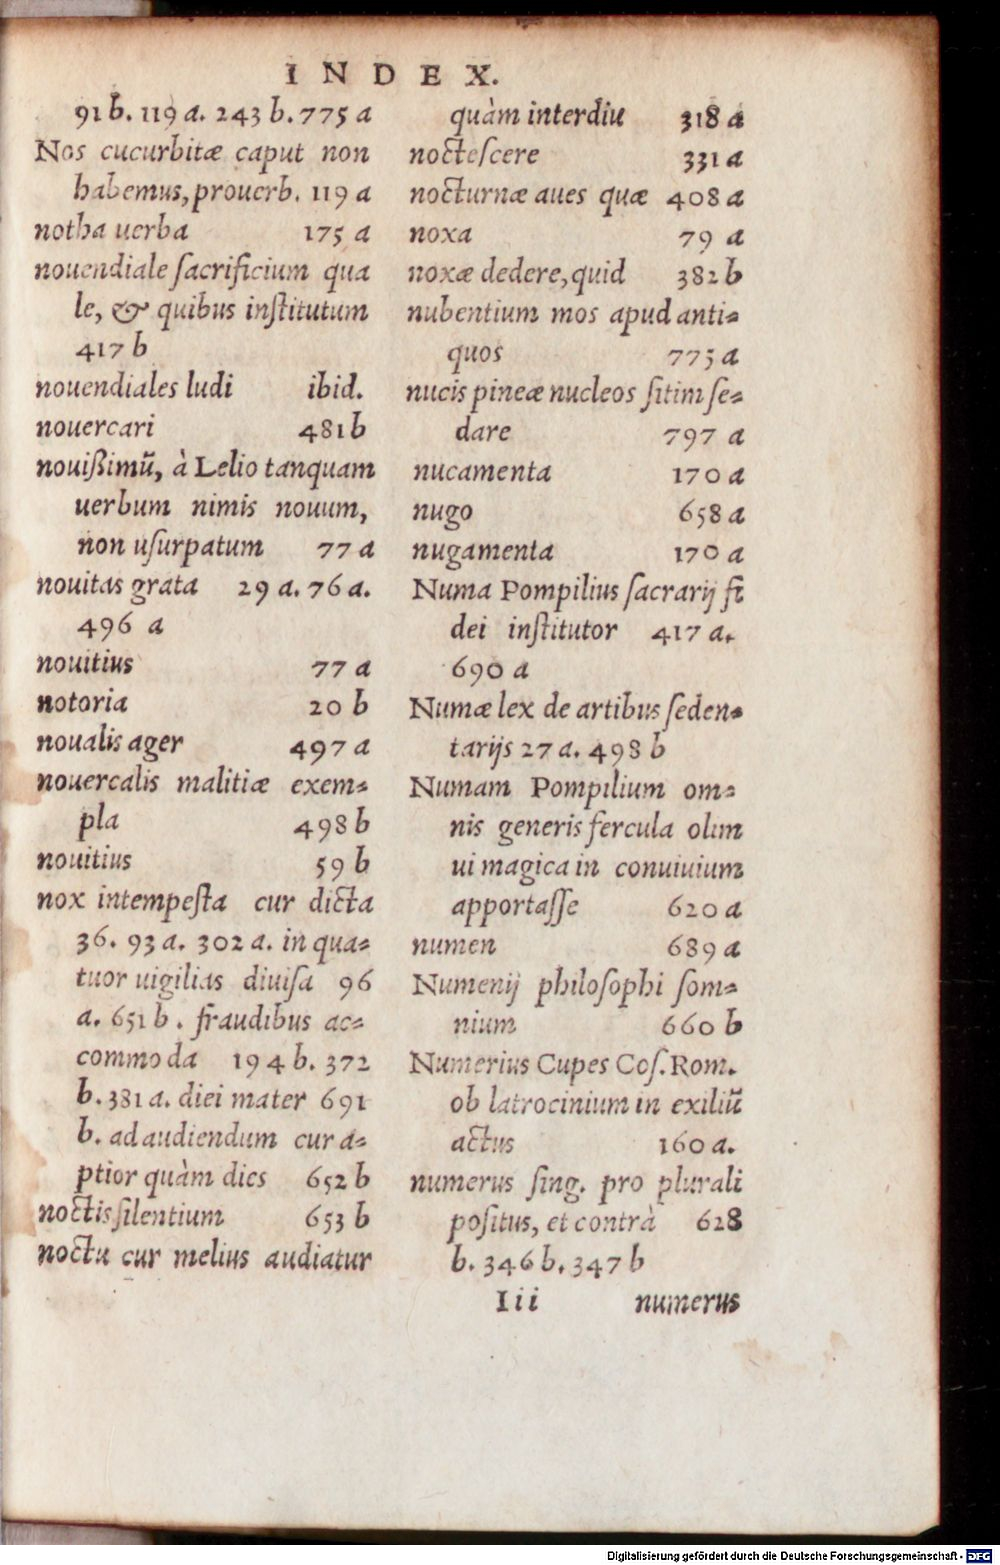 INDEX.
91 b. 119 a. 243 b. 775 a
Nos cucurbitæ caput non
habemus, prouerb. 119 a
notha uerba 175 a
nouendiale ſacrificium qua
le, & quibus inſtitutum
417 b
nouendiales ludi ibid.
nouercari 481 b
nouißimũ, à Lelio tanquam
uerbum nimis nouum,
non uſurpatum 77 a
nouitas grata 29 a. 76 a.
496 a
nouitius 77 a
notoria 20 b
noualis ager 497 a
nouercalis malitiæ exem-
pla 498 b
nouitius 59 b
nox intempeſta cur dicta
36. 93 a. 302 a. in qua-
tuor uigilias diuiſa 96
a. 651 b. fraudibus ac-
commoda 194 b. 372
b. 381 a. diei mater 691
b. ad audiendum cur a-
ptior quàm dies 652 b
noctis ſilentium 653 b
noctu cur melius audiatur
quàm interdiu 318 a
nocteſcere 331 a
nocturnæ aues quæ 408 a
noxa 79 a
noxæ dedere, quid 382 b
nubentium mos apud anti-
quos 775 a
nucis pineæ nucleos ſitim ſe-
dare 797 a
nucamenta 170 a
nugo 658 a
nugamenta 170 a
Numa Pompilius ſacrarij fi
dei inſtitutor 417 a.
690 a
Numæ lex de artibus ſeden-
tarijs 27 a. 498 b
Numam Pompilium om-
nis generis fercula olim
ui magica in conuiuium
apportaſſe 620 a
numen 689 a
Numenij philoſophi ſom-
nium 660 b
Numerius Cupes Coſ. Rom.
ob latrocinium in exiliũ
actus 160 a.
numerus ſing. pro plurali
poſitus, et contrà 628
b. 346 b. 347 b
Iii numerus
Digitalisierung gefördert durch die Deutsche Forschungsgemeinschaft - DFG